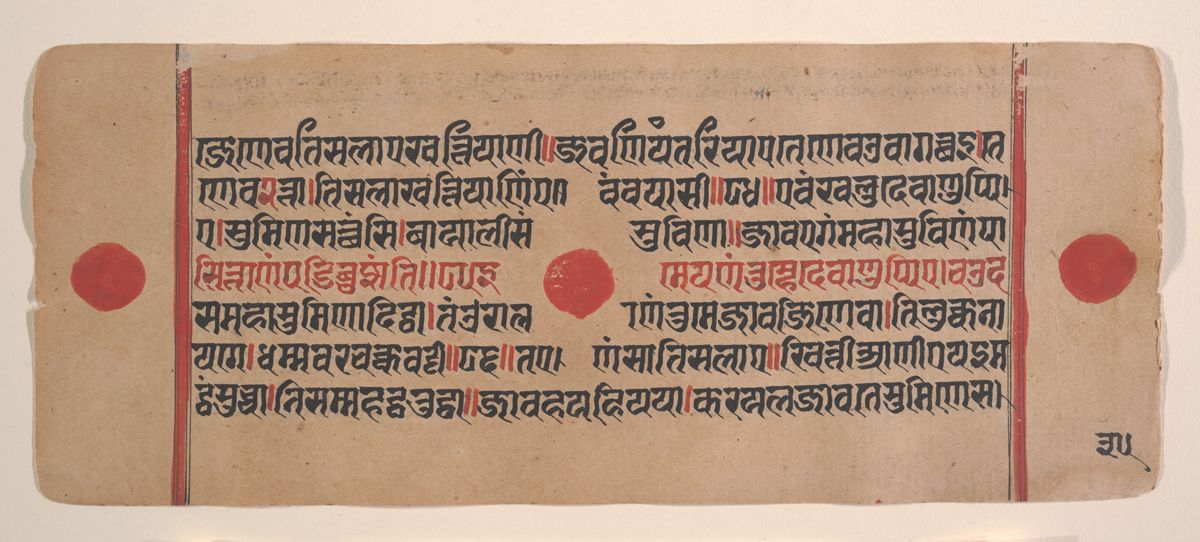 जेणेवतिसलाएखत्तियाणी॥जवणिंयंतरियाएतेणेवउवागच्छइ।ते
णेव२त्ता।तिसलाखत्तियाणिंए॥ वंवयासी॥८४॥एवंखलुदेवाणुप्पि।
ए।सुमिणसत्थंसि।बायालीसं सुविणा॥जावएगंमहासुविणंपा
सित्ताणंपडिबुझंति॥८५ इमेयणंतुम्हेदेवाणुप्पिए।चउद
समहासुमिणादिट्ठा।तंउराल णंतुमेजावजिणेवा।तेलुक्कना
यगे।धम्मवरचक्कवट्टी॥८६॥तए। णंसातिसलाए॥खत्तीआणीएयइम
ट्ठंसुच्चा।निसम्महट्ठतुट्ठा॥जावहयहियया।करयलजावतेसुमिणेस।
३५